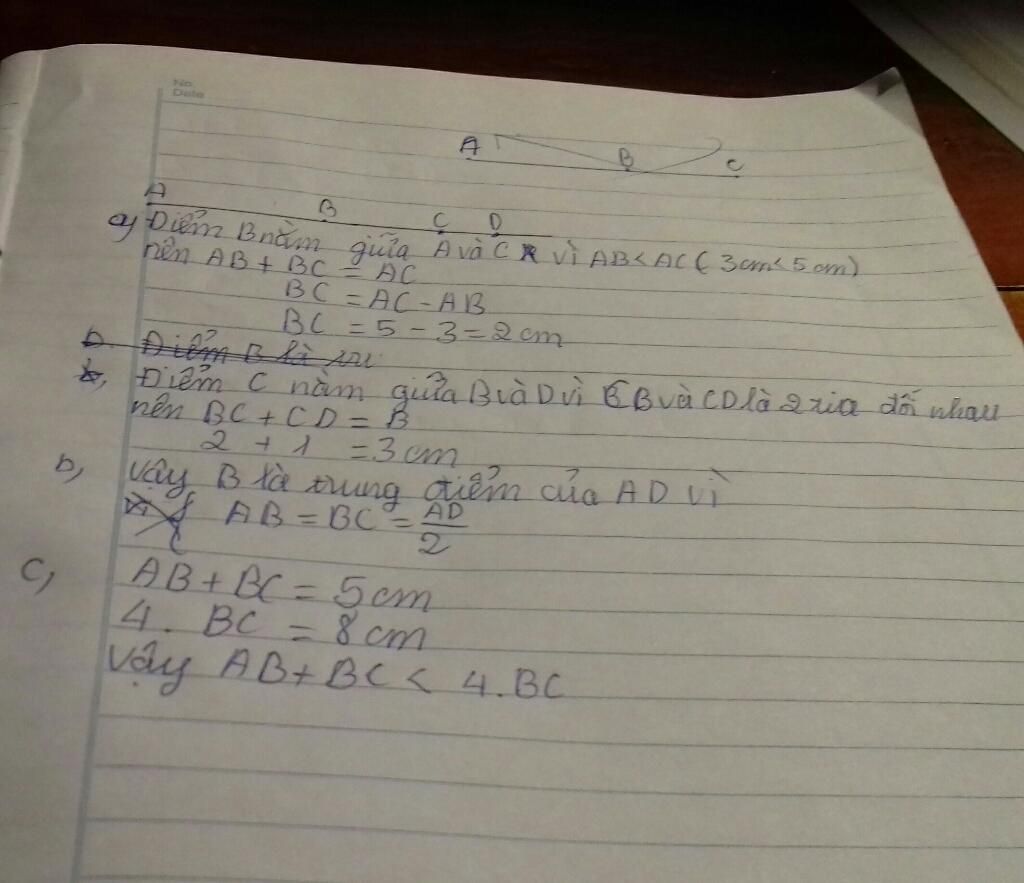 No.
Date
A B C
A B C D
a) Điểm B nằm giữa A và C vì AB < AC (3cm < 5cm)
nên AB + BC = AC
BC = AC - AB
BC = 5 - 3 = 2cm
b. Điểm B là
b, Điểm C nằm giữa B và D vì CB và CD là 2 tia đối nhau
nên BC + CD = B
2 + 1 = 3cm
b, vậy B là trung điểm của AD vì
AB = BC = AD/2
c, AB + BC = 5cm
4. BC = 8cm
vậy AB + BC < 4.BC